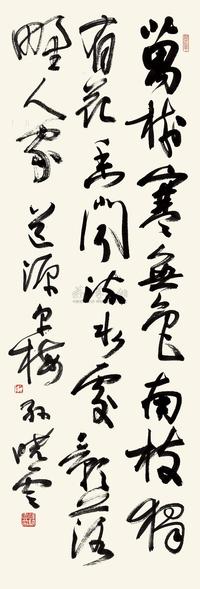 萬樹寒無色南枝獨
有花香聞流水處影落
野人家 道源早梅 孫曉雲